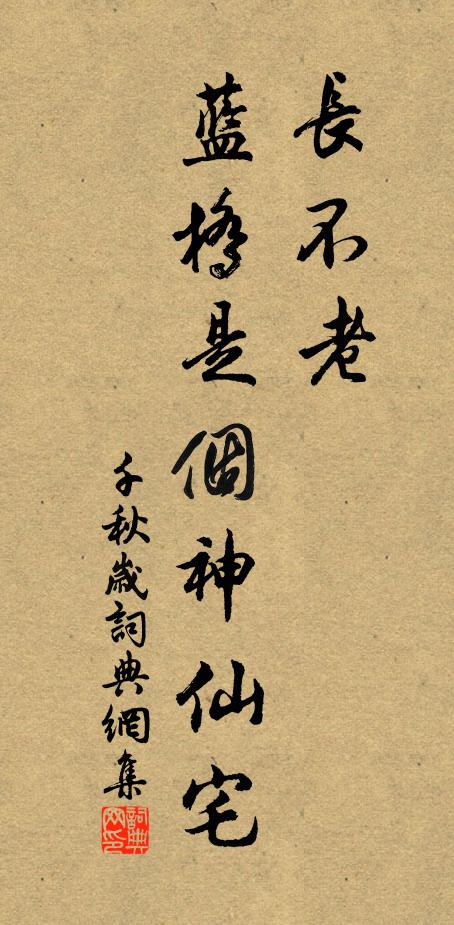 長不老
藍橋是個神仙宅
千秋歲詞典網集
詞典
网印